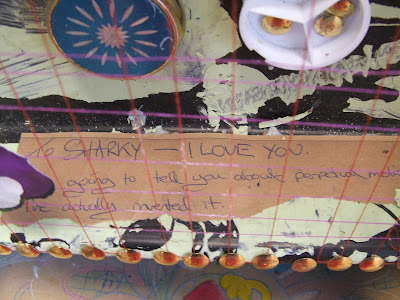 To SHARKY — I LOVE YOU.
going to tell you about perpetual motion
I've actually invented it.